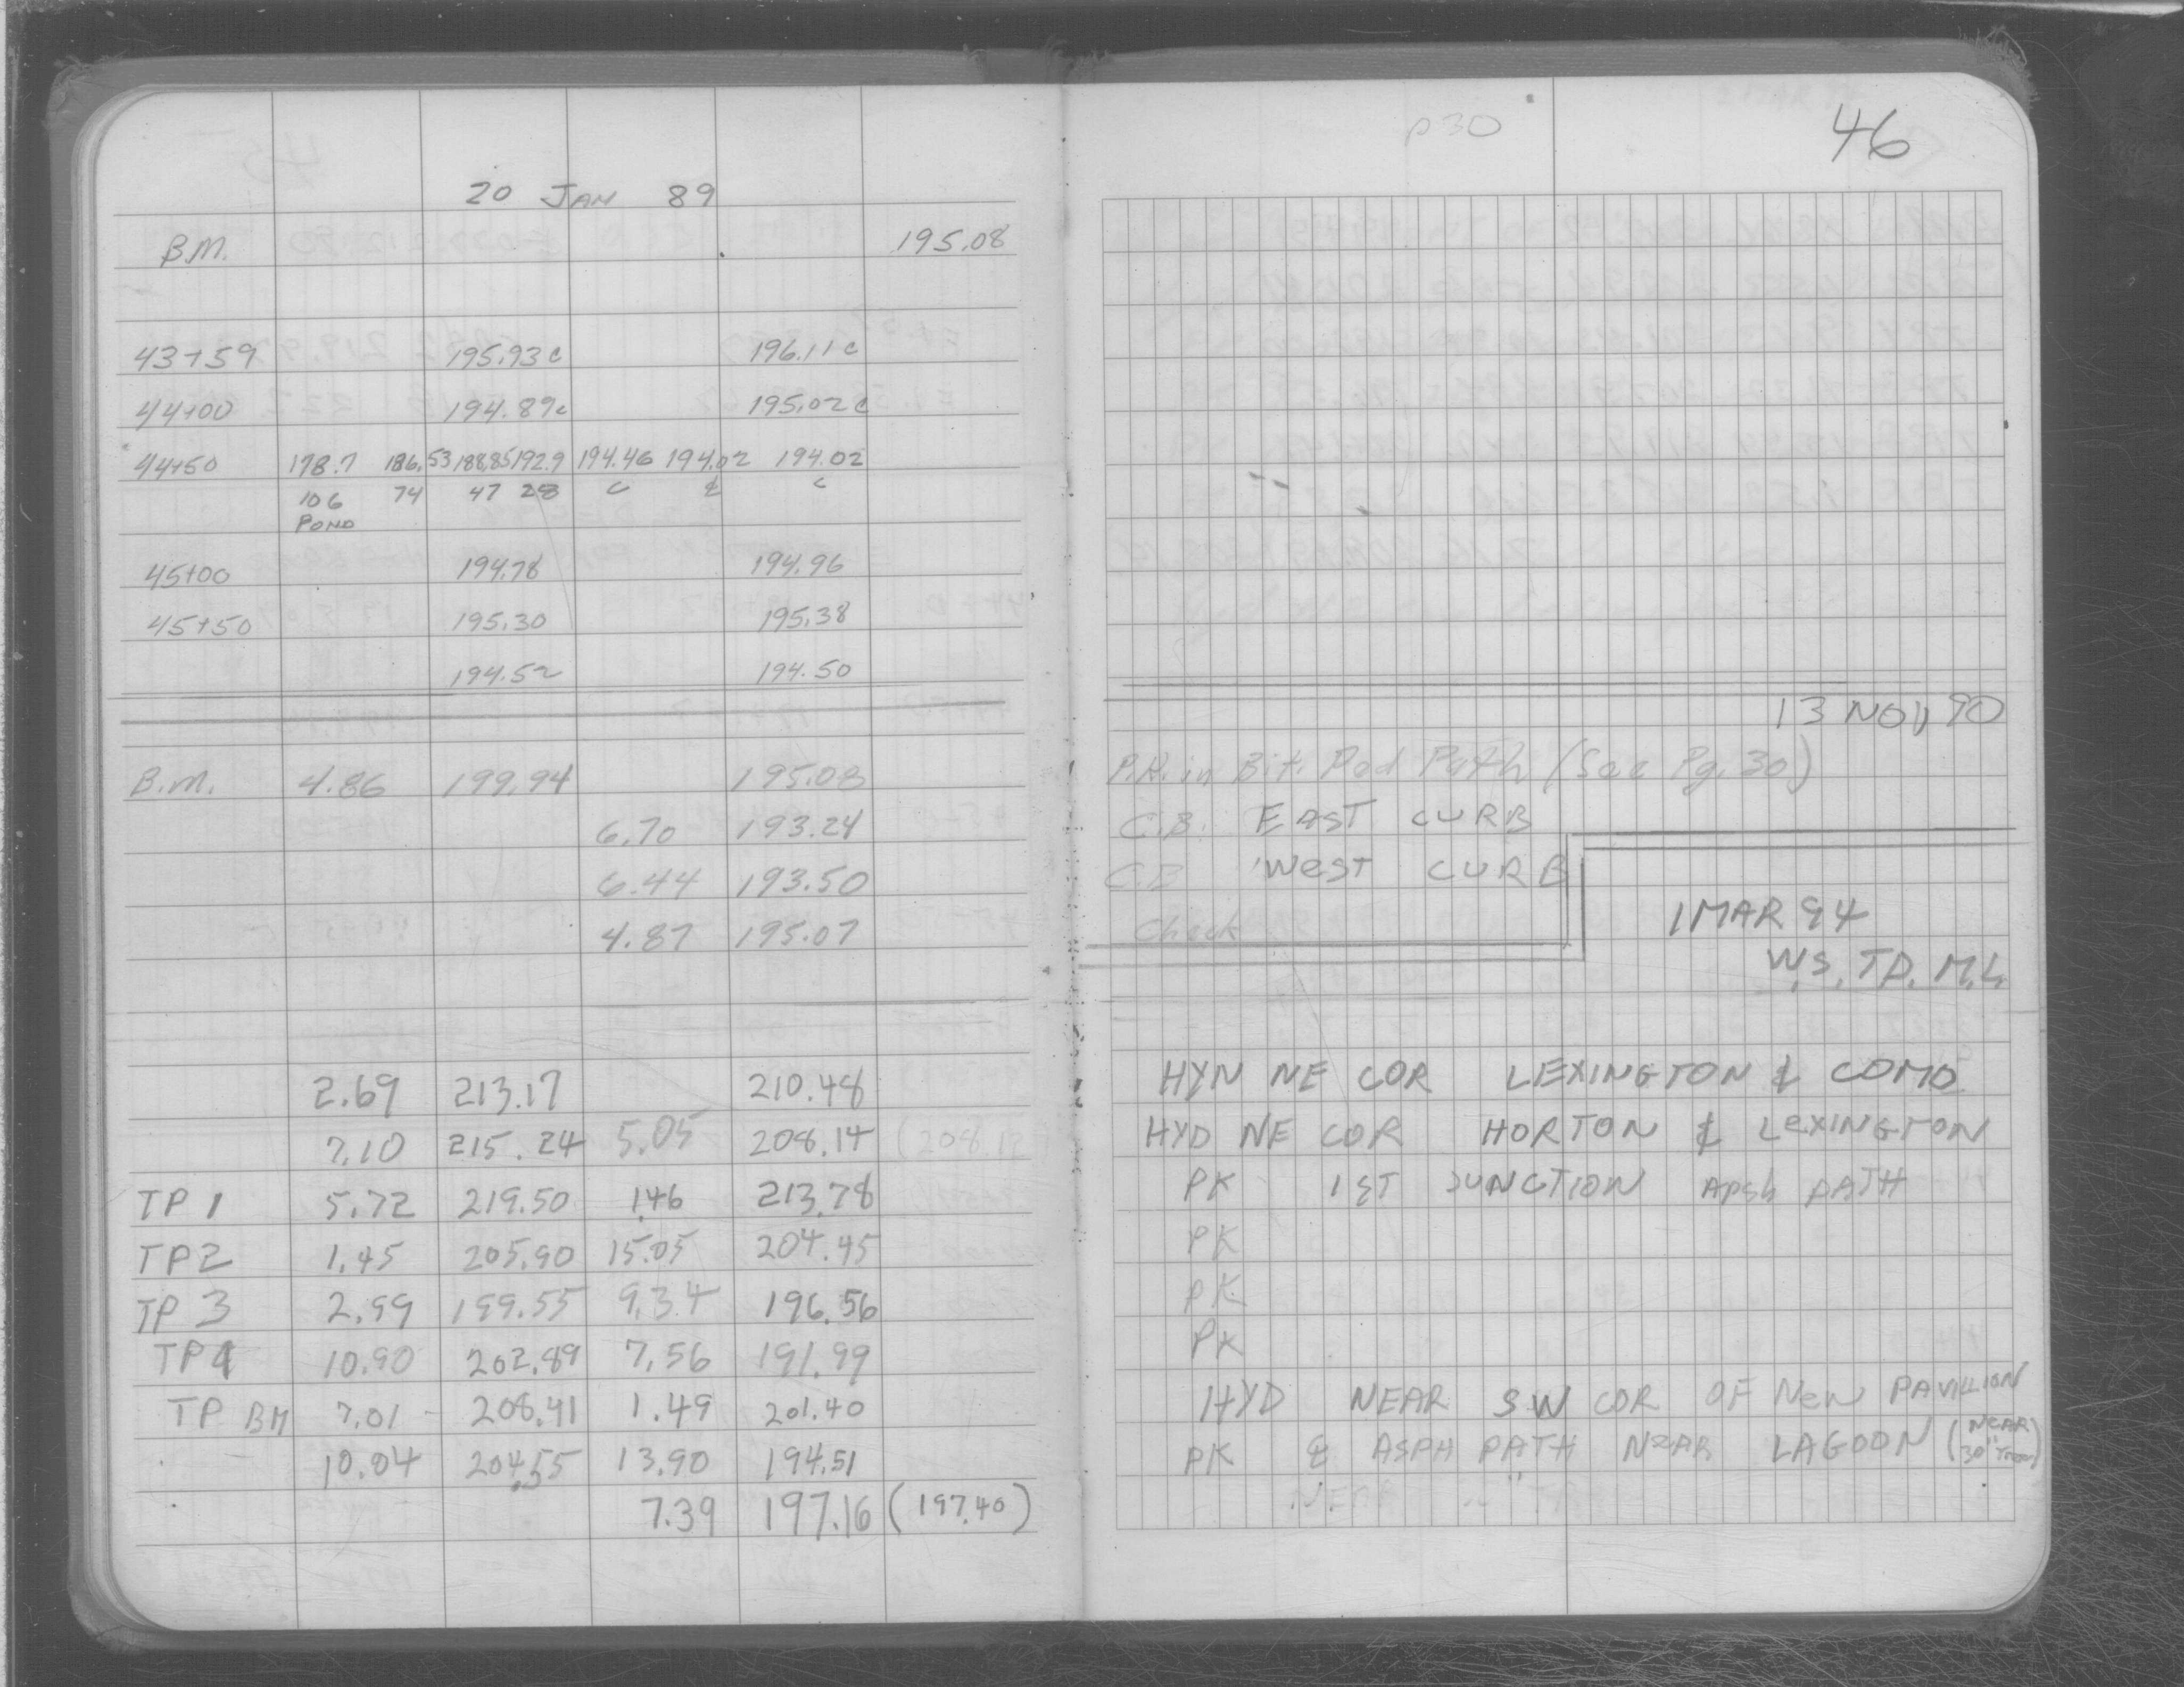 20 JAN 89
B.M. 195.08
43+59 195.93 c 196.11 c
44+00 194.89 c 195.02 c
44+50 178.7 186.53 188.85 192.9 194.46 194.02 194.02
106 74 47 28 c ℄ c
POND
45+00 194.78 194.96
45+50 195.30 195.38
194.52 194.50
B.M. 4.86 199.94 195.08
6.70 193.24
6.44 193.50
4.87 195.07
2.69 213.17 210.48
7.10 215.24 5.05 208.14 (208.12
TP 1 5.72 219.50 1.46 213.78
TP2 1.45 205.90 15.05 204.45
TP 3 2.99 199.55 9.34 196.56
TP4 10.90 202.89 7.56 191.99
TP BM 7.01 208.41 1.49 201.40
10.04 204.55 13.90 194.51
7.39 197.16 (197.40)
p30
46
13 NOV 90
P.K. in Bit. Ped Path (See Pg. 30)
C.B. EAST CURB
C.B WEST CURB
Check
1 MAR 94
W.S. T.D. M.L.
HYN NE COR LEXINGTON & COMO
HYD NE COR HORTON & LEXINGTON
PK 1ST JUNCTION Apsh PATH
PK
PK
PK
HYD NEAR SW COR OF NEW PAVILLION
PK ℄ ASPH PATH NEAR LAGOON (NEAR 30" Tree)